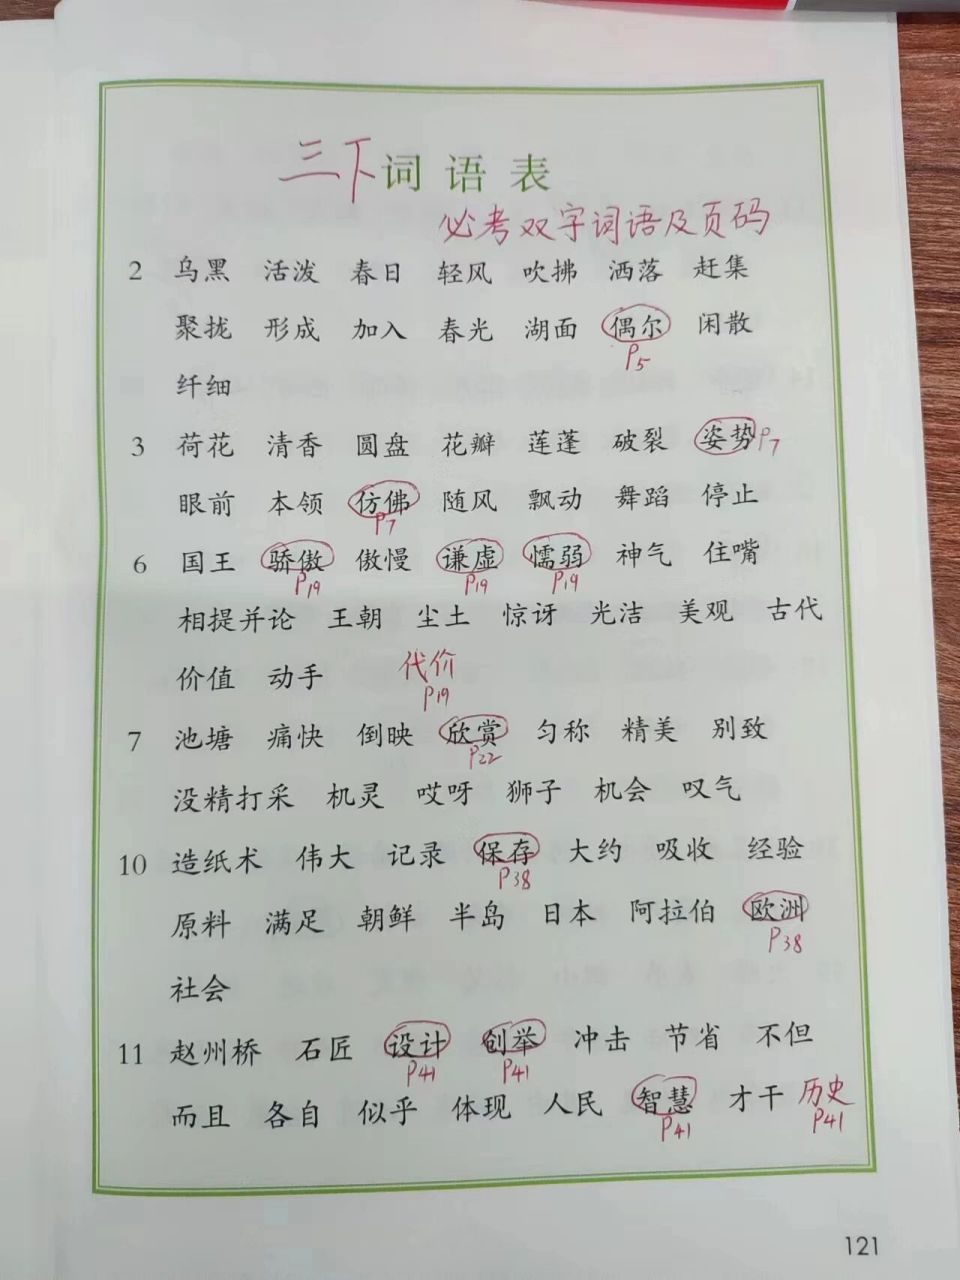 三下 词语表
必考双字词语及页码
2 乌黑 活泼 春日 轻风 吹拂 洒落 赶集
聚拢 形成 加入 春光 湖面 偶尔 闲散
P5
纤细
3 荷花 清香 圆盘 花瓣 莲蓬 破裂 姿势 P7
眼前 本领 仿佛 随风 飘动 舞蹈 停止
P7
6 国王 骄傲 傲慢 谦虚 懦弱 神气 住嘴
P19 P19 P19
相提并论 王朝 尘土 惊讶 光洁 美观 古代
价值 动手 代价
P19
7 池塘 痛快 倒映 欣赏 匀称 精美 别致
P22
没精打采 机灵 哎呀 狮子 机会 叹气
10 造纸术 伟大 记录 保存 大约 吸收 经验
P38
原料 满足 朝鲜 半岛 日本 阿拉伯 欧洲
P38
社会
11 赵州桥 石匠 设计 创举 冲击 节省 不但
P41 P41
而且 各自 似乎 体现 人民 智慧 才干 历史
P41 P41
121